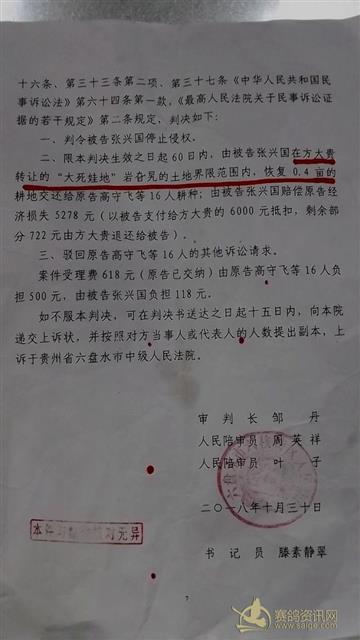 十六条、第三十三条第二项、第三十七条《中华人民共和国民
事诉讼法》第六十四条第一款，《最高人民法院关于民事诉讼证
据的若干规定》第二条规定，判决如下：
一、判令被告张兴国停止侵权。
二、限本判决生效之日起60日内，由被告张兴国在方大贵
转让的“大死娃地”岩仓旯的土地界限范围内，恢复0.4亩的
耕地交还给原告高守飞等16人耕种；由被告张兴国赔偿原告经
济损失5278元（以被告支付给方大贵的6000元抵扣，剩余部
分722元由方大贵退还给被告）。
三、驳回原告高守飞等16人的其他诉讼请求。
案件受理费618元（原告已交纳）由原告高守飞等16人负
担500元，由被告张兴国负担118元。
如不服本判决，可在判决书送达之日起十五日内，向本院
递交上诉状，并按照对方当事人或代表人的人数提出副本，上
诉于贵州省六盘水市中级人民法院。
审判长 邹丹
人民陪审员 周英祥
人民陪审员 叶子
二〇一八年十月三十日
本件与 对无异
书记员 滕素静翠
7
赛鸽资讯网
www.saige.com